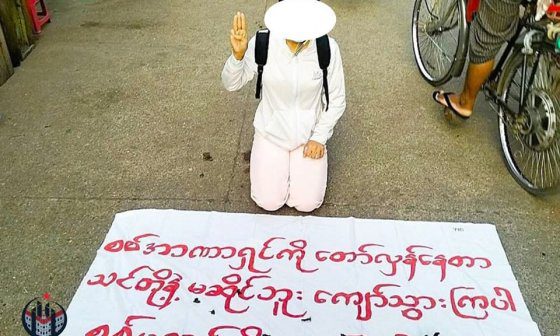 စစ်အာဏာရှင်ကို တော်လှန်နေတာ
သင်တို့နဲ့ မဆိုင်ဘူး ကျော်သွားကြပါ